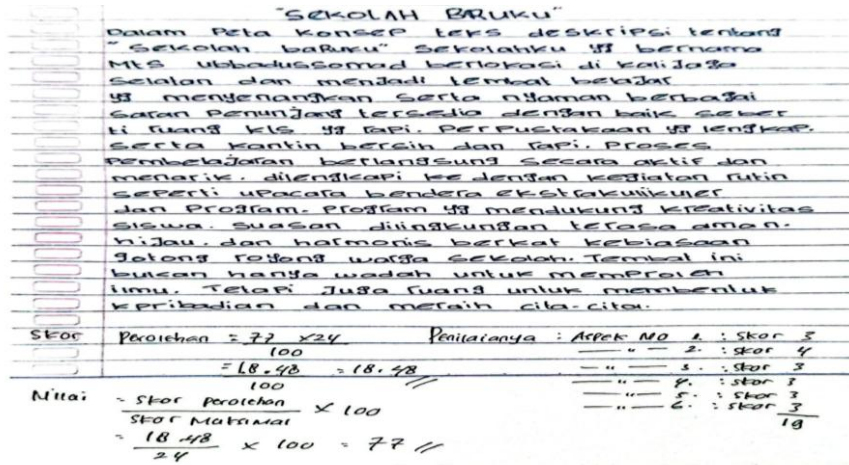 "SEKOLAH BARUKU"
Dalam Peta Konsep teks deskripsi tentang
"Sekolah baRuku" Sekolahku yg bernama
Mts ubbadussomad berlokasi di kaliJaga
Selatan dan menJadi tembat belaJar
yg menyenangkan serta nyaman berbagai
saran PenunJang tersedia dengan baik seber
ti ruang kls yg rapi. PerPustakaan yg lengkap.
serta kantin bersih dan rapi. Proses
PembelaJaran berlangsung secara aktif dan
menarik. dilengkapi ke dengan kegiatan rutin
seperti uPacara bendera ekstrakulikuler
dan Program-Program yg mendukung kreativitas
siswa. suasan dilingkungan terasa aman.
hiJau. dan harmonis berkat kebiasaan
gotong royong warga sekolah. Tembat ini
bukan hanya wadah untuk memproleh
ilmu. Tetapi Juga ruang untuk membentuk
kpribadian dan meraih cita-cita.
Skor Perolehan = 77 x24
100
= 18.48 = 18.48
100
Nilai = Skor perolehan x 100
Skor Maksimal
= 18.48 x 100 = 77
24
Penilaianya : Aspek No 1. : Skor 3
— " — 2. : skor 4
— " — 3. : skor 3
— " — 4. : skor 3
— " — 5. : skor 3
— " — 6. : skor 3
19